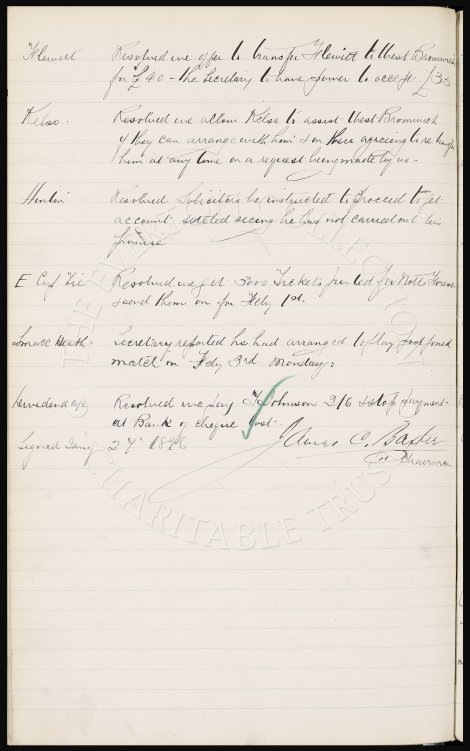 Hewitt Resolved we offer to transfer Hewitt to West Bromwich
for £40 - the Secretary to have power to accept £35
Kelso - Resolved we allow Kelso to assist West Bromwich
if they can arrange with him & on their agreeing to re transfer
him at any time on a request being made by us -
Hinton Resolved Solicitors be instructed to proceed to get
account settled seeing he has not carried out his
promise
E Cup Tie Resolved we get 3000 Tickets printed for Notts Forest
& send them on for Feby 1st.
Small Heath: Secretary reported he had arranged to play postponed
match on Feby 3rd Monday:
Dividend a/c Resolved we pay Johnson 2/6 & stop payment
at Bank of cheque lost
Signed 27 1896 James C. Baxter
Chairman
© THE EVERTON COLLECTION
CHARITABLE TRUST